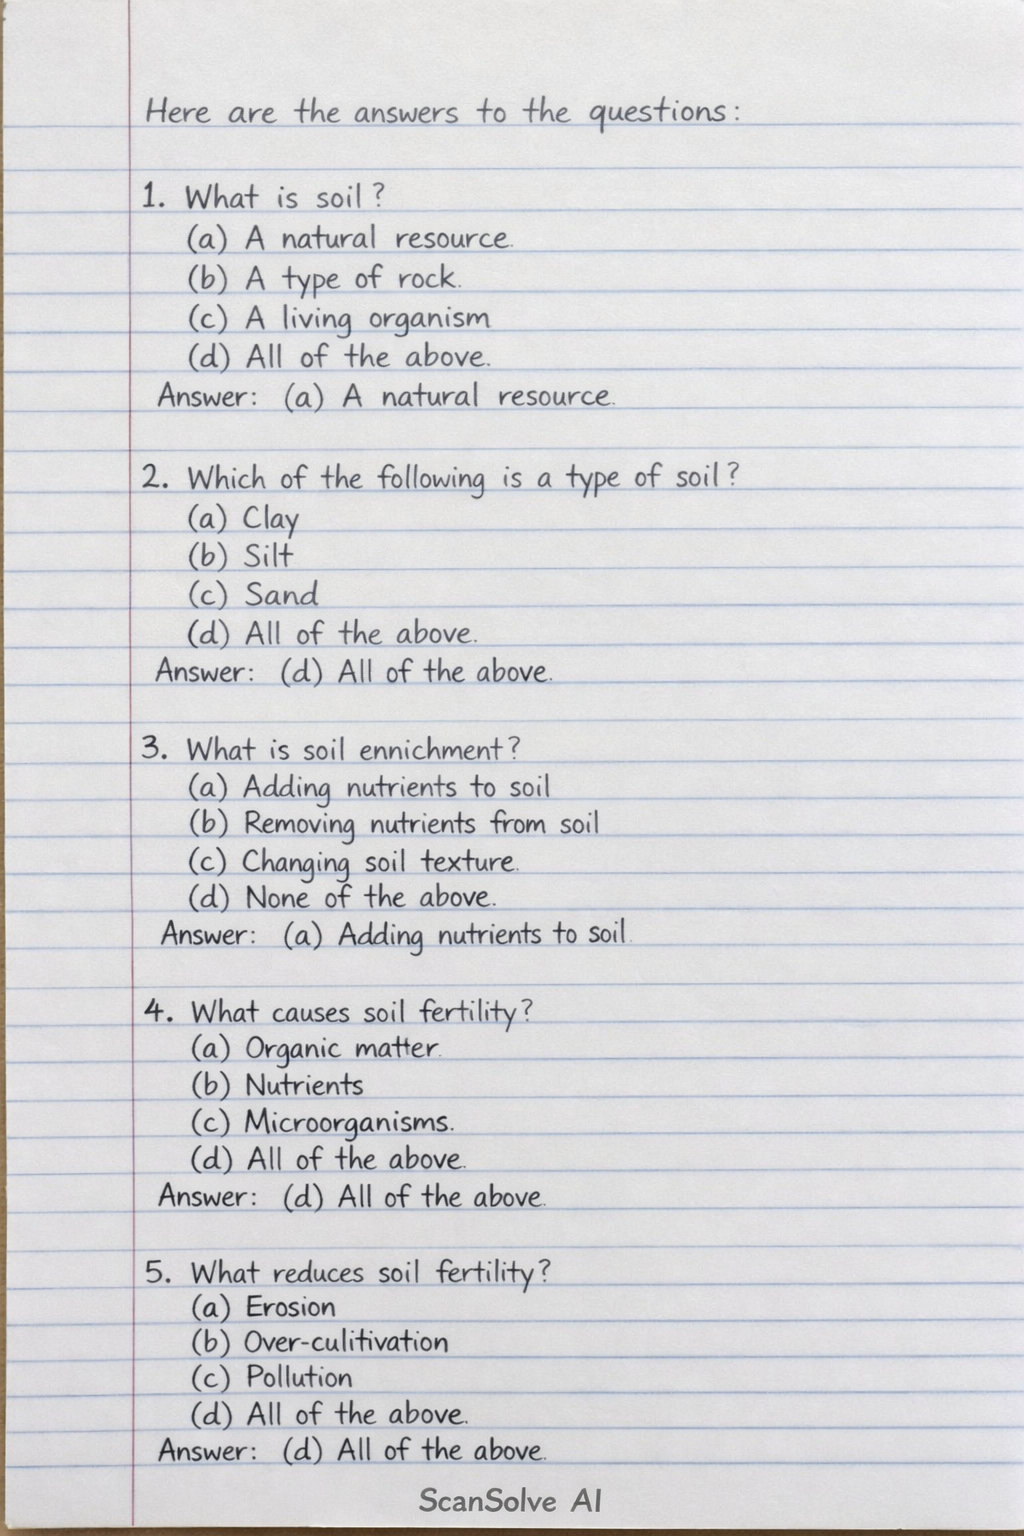 Here are the answers to the questions:
1. What is soil?
(a) A natural resource.
(b) A type of rock.
(c) A living organism
(d) All of the above.
Answer: (a) A natural resource.
2. Which of the following is a type of soil?
(a) Clay
(b) Silt
(c) Sand
(d) All of the above.
Answer: (d) All of the above.
3. What is soil ennichment?
(a) Adding nutrients to soil
(b) Removing nutrients from soil
(c) Changing soil texture.
(d) None of the above.
Answer: (a) Adding nutrients to soil.
4. What causes soil fertility?
(a) Organic matter.
(b) Nutrients
(c) Microorganisms.
(d) All of the above.
Answer: (d) All of the above.
5. What reduces soil fertility?
(a) Erosion
(b) Over-culitivation
(c) Pollution
(d) All of the above.
Answer: (d) All of the above.
ScanSolve AI